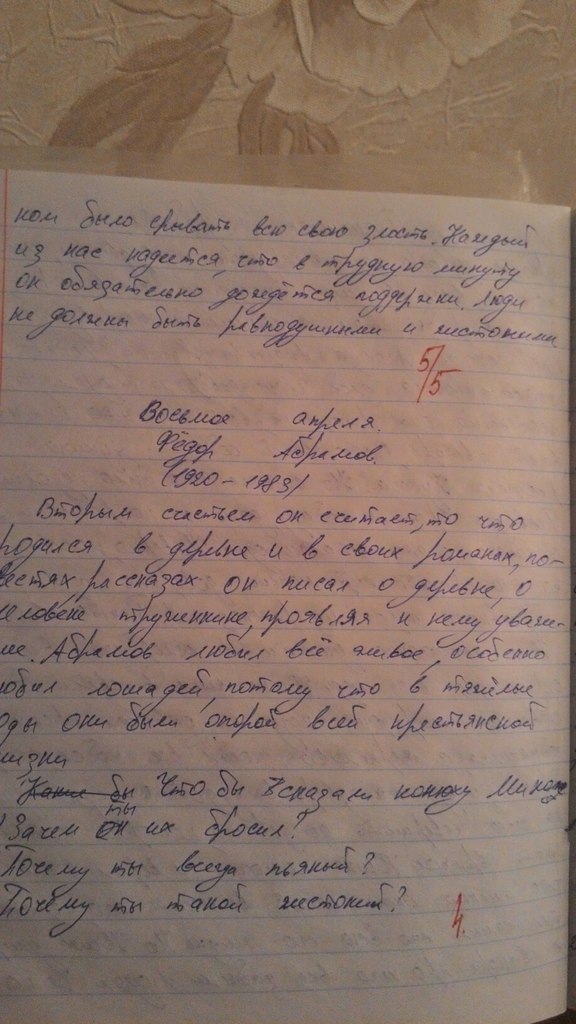 ком было срывать всю свою злость. Каждый
из нас надеется, что в трудную минуту
он обязательно дождётся поддержки. Люди
не должны быть равнодушными и жестокими
5/5
Восьмое апреля.
Фёдор Абрамов.
(1920-1983)
Вторым счастьем он считает, то что
родился в деревне и в своих романах, по-
вестях, рассказах он писал о деревне, о
человеке труженнике, проявляя к нему уваже-
ние. Абрамов любил всё живое, особенно
любил лошадей, потому что в тяжёлые
годы они были опорой всей крестьянской
жизни
Что бы я сказала конюху Миколе
Зачем ты их бросил?
Почему ты всегда пьяный?
Почему ты такой жестокий?
4.